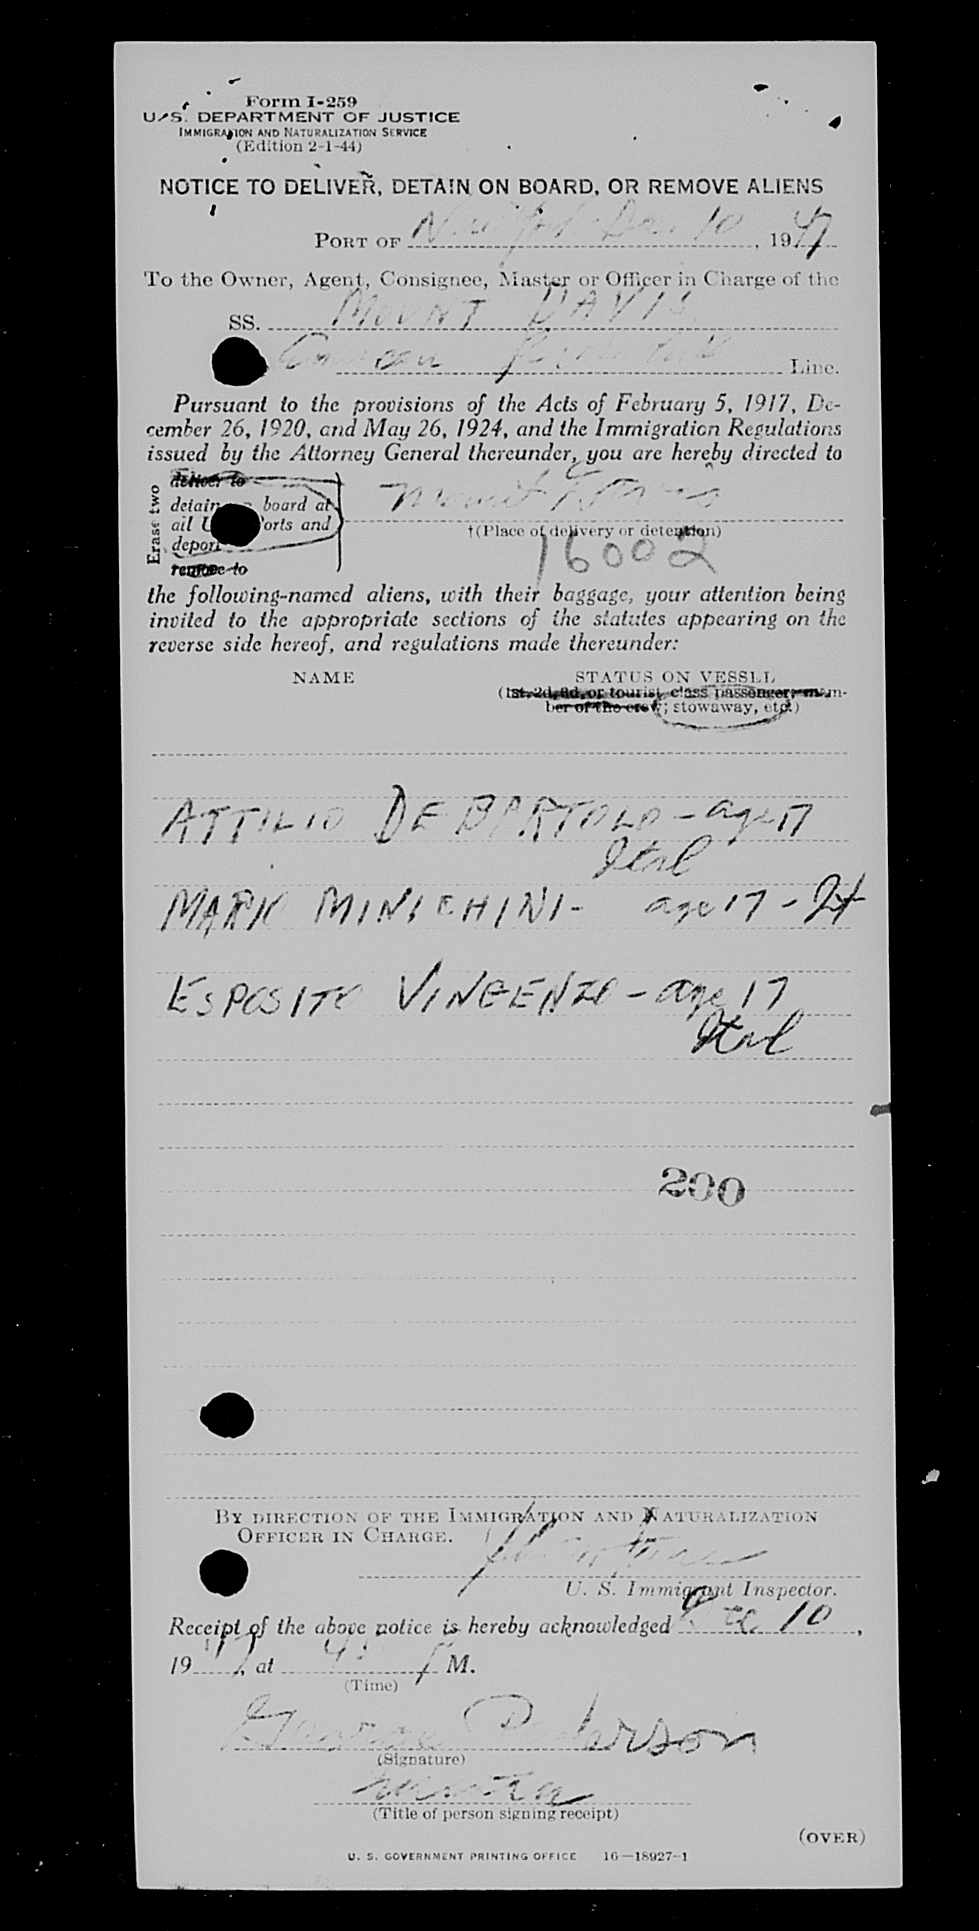 Form I-259
U. S. DEPARTMENT OF JUSTICE
IMMIGRATION AND NATURALIZATION SERVICE
(Edition 2-1-44)
NOTICE TO DELIVER, DETAIN ON BOARD, OR REMOVE ALIENS
PORT OF New York Dec. 10, 1947
To the Owner, Agent, Consignee, Master or Officer in Charge of the
SS. MOUNT DAVIS
Line.
Pursuant to the provisions of the Acts of February 5, 1917, De-
cember 26, 1920, and May 26, 1924, and the Immigration Regulations
issued by the Attorney General thereunder, you are hereby directed to
Erase two
deliver to
detain board at
ports and
deport
remove to
Mount Davis
†(Place of delivery or detention)
16002
the following-named aliens, with their baggage, your attention being
invited to the appropriate sections of the statutes appearing on the
reverse side hereof, and regulations made thereunder:
NAME STATUS ON VESSEL
(1st, 2d, 3d, or tourist class passenger; mem-
ber of the crew; stowaway, etc.)
ATTILIO DE BARTOLO - age 17
Ital
MARK MINICHINI - age 17 - It
ESPOSITO VINCENZO - age 17
Ital
200
BY DIRECTION OF THE IMMIGRATION AND NATURALIZATION
OFFICER IN CHARGE.
U. S. Immigrant Inspector.
Receipt of the above notice is hereby acknowledged Dec 10,
1947, at 4 P M.
(Time)
George Pederson
(Signature)
Master
(Title of person signing receipt)
(OVER)
U. S. GOVERNMENT PRINTING OFFICE 16—18927-1